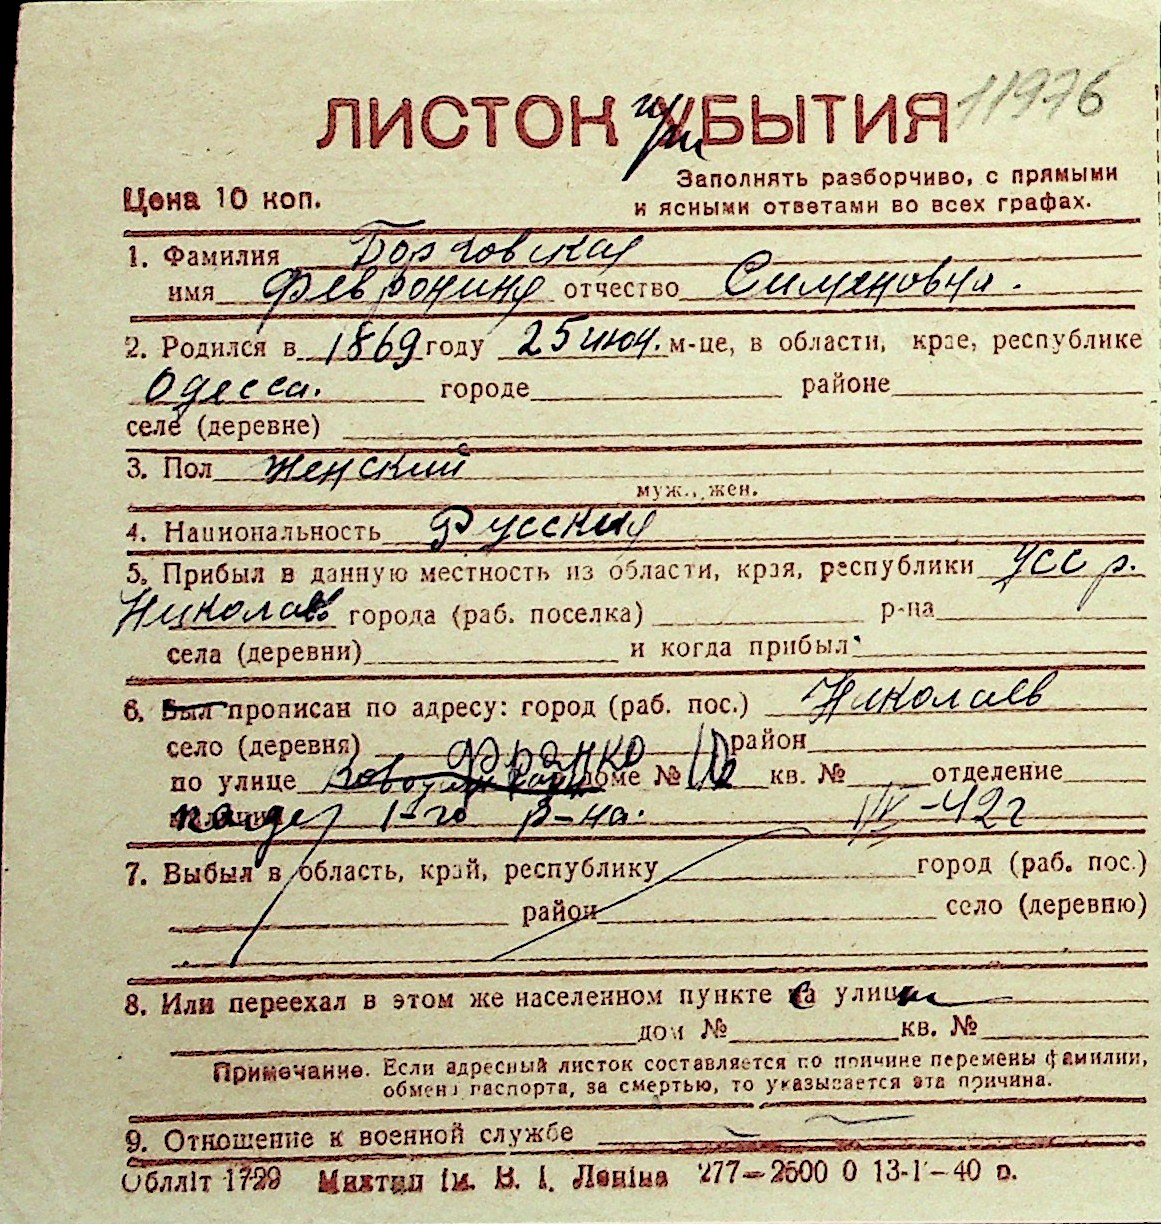 11976
ЛИСТОК при УБЫТИЯ
Цена 10 коп.
Заполнять разборчиво, с прямыми
и ясными ответами во всех графах.
1. Фамилия
имя Феврониния отчество Сименовна.
2. Родился в 1869 году 25 июн. м-це, в области, крае, республике
Одесса. городе районе
селе (деревне)
3. Пол женский
муж., жен.
4. Национальность Русская
5. Прибыл в данную местность из области, края, республики УССР.
Николаев города (раб. поселка) р-на
села (деревни) и когда прибыл
6. Был прописан по адресу: город (раб. пос.) Николаев
село (деревня) Франко район
по улице доме № кв. № отделение
1-го р-на. -42г
7. Выбыл в область, край, республику город (раб. пос.)
район село (деревню)
8. Или переехал в этом же населенном пункте с улицы
дом № кв. №
Примечание. Если адресный листок составляется по причине перемены фамилии,
обмена паспорта, за смертью, то указывается эта причина.
9. Отношение к военной службе
Обллiт 1729 Миктип iм. В. I. Ленiна 277—2500 0 13-1-40 р.